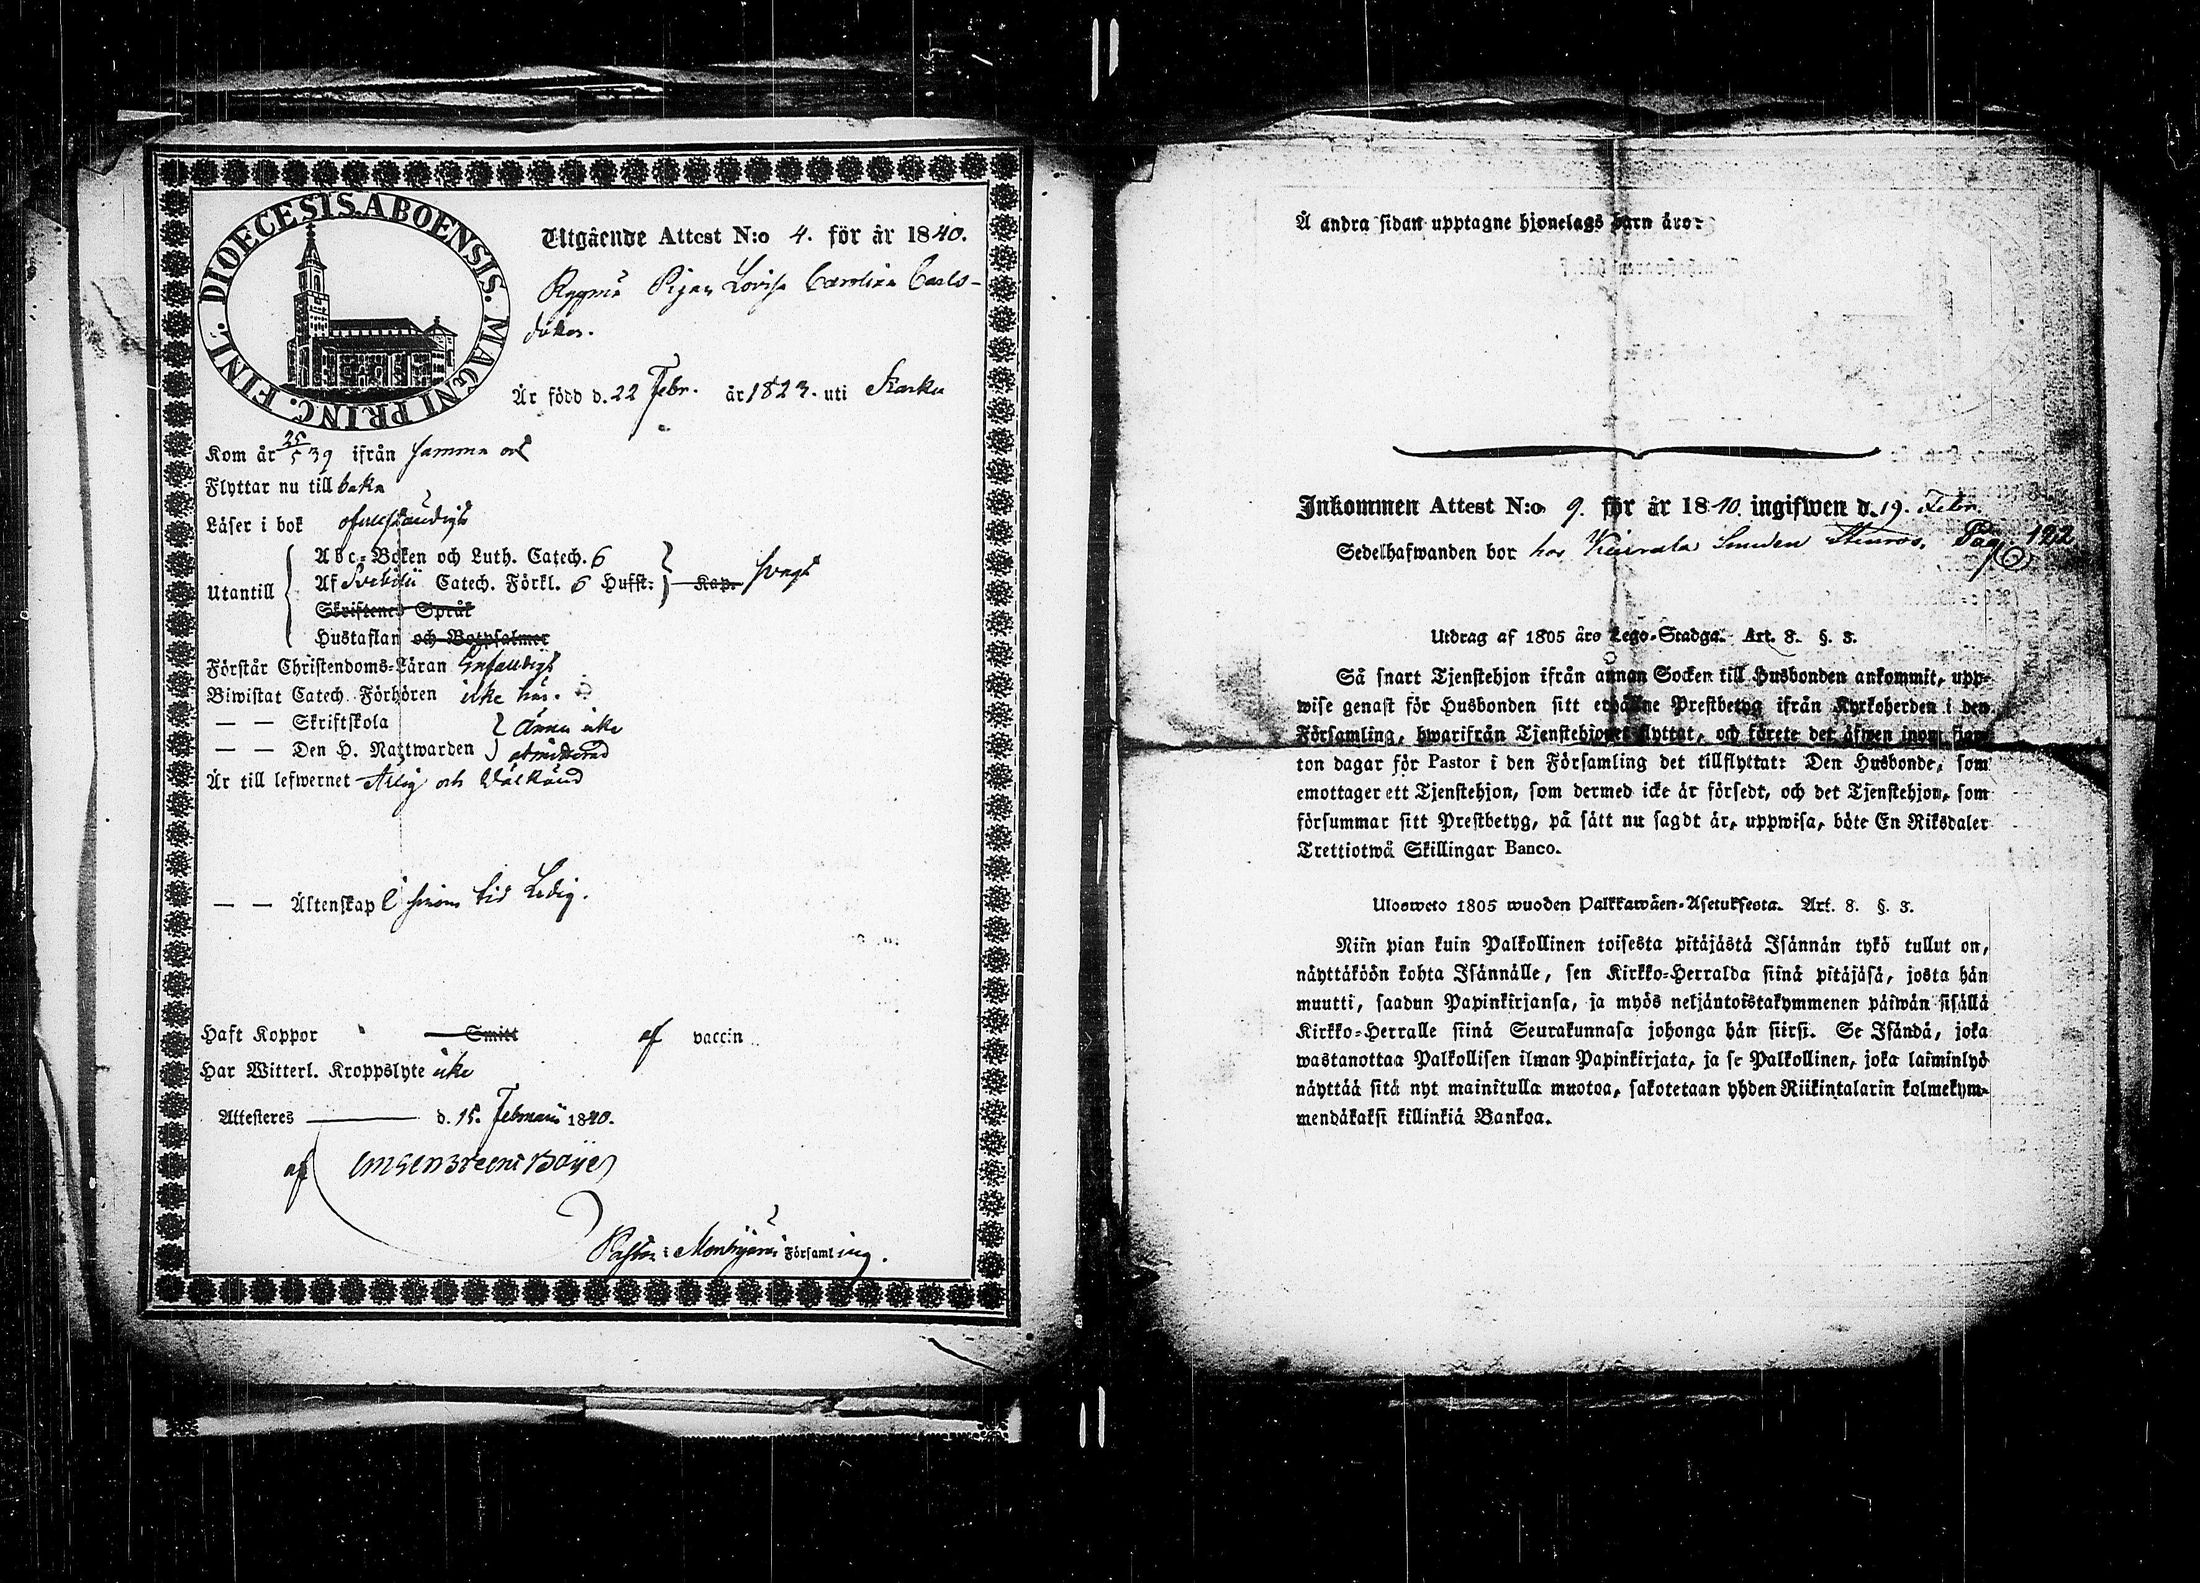 DIOECESIS. ABOENSIS. MAGNI PRINC. FINL.
Utgående Attest N:o 4. för år 1840.
Pigan Lovisa Carolina Carls-
dotter.
Är född d. 22 Febr. år 1823. uti Karku
Kom år 25/5 39 ifrån samma ort
Flyttar nu till baka
Läser i bok oförståndigt
Utantill
Abc-Boken och Luth. Catech. 6
Af Svebilii Catech. Förkl. 6 Hufst: Kap. svagt
Skriftenes Språk
Hustaflan och Botpsalmer
Förstår Christendoms-Läran Enfaldigt
Biwistat Catech. Förhören icke här.
— — Skriftskola
— — Den H. Nattwarden
Ännu icke
admitterad
Är till lefwernet Ärlig och Välkänd
— — Äktenskap Ledig.
Haft Koppor Smitt af vaccin
Har Witterl. Kroppslyte icke
Attesteras d. 15. Februarii 1840.
af
Pastor i Mouhijärvi Församling.
Å andra sidan upptagne hjonelags barn äro:
Inkommen Attest N:o 9. för år 1840 ingifwen d. 19. Febr.
Sedelhafwanden bor hos Pag. 122
Utdrag af 1805 års Lego-Stadga. Art. 8. §. 3.
Så snart Tjenstehjon ifrån annan Socken till Husbonden ankommit, upp-
wise genast för Husbonden sitt erhållne Prestbetyg ifrån Kyrkoherden i den
Församling, hwarifrån Tjenstehjonet flyttat, och förete det äfwen inom fjor-
ton dagar för Pastor i den Församling det tillflyttat: Den Husbonde, som
emottager ett Tjenstehjon, som dermed icke är försedt, och det Tjenstehjon, som
försummar sitt Prestbetyg, på sätt nu sagdt är, uppwisa, böte En Riksdaler
Trettiotwå Skillingar Banco.
Ulosweto 1805 wuoden Palkkawäen-Asetuksesta. Art. 8. §. 3.
Niin pian kuin Palkollinen toisesta pitäjästä Isännän tykö tullut on,
näyttäköön kohta Isännälle, sen Kirkko-Herralda siinä pitäjäsä, josta hän
muutti, saadun Papinkirjansa, ja myös neljäntoistakymmenen päiwän sisällä
Kirkko-Herralle siinä Seurakunnasa johonga hän siirsi. Se Isändä, joka
wastanottaa Palkollisen ilman Papinkirjata, ja se Palkollinen, joka laiminlyö
näyttää sitä nyt mainitulla muotoa, sakotetaan yhden Riikintalarin kolmekym-
mendäkaksi killinkiä Bankoa.